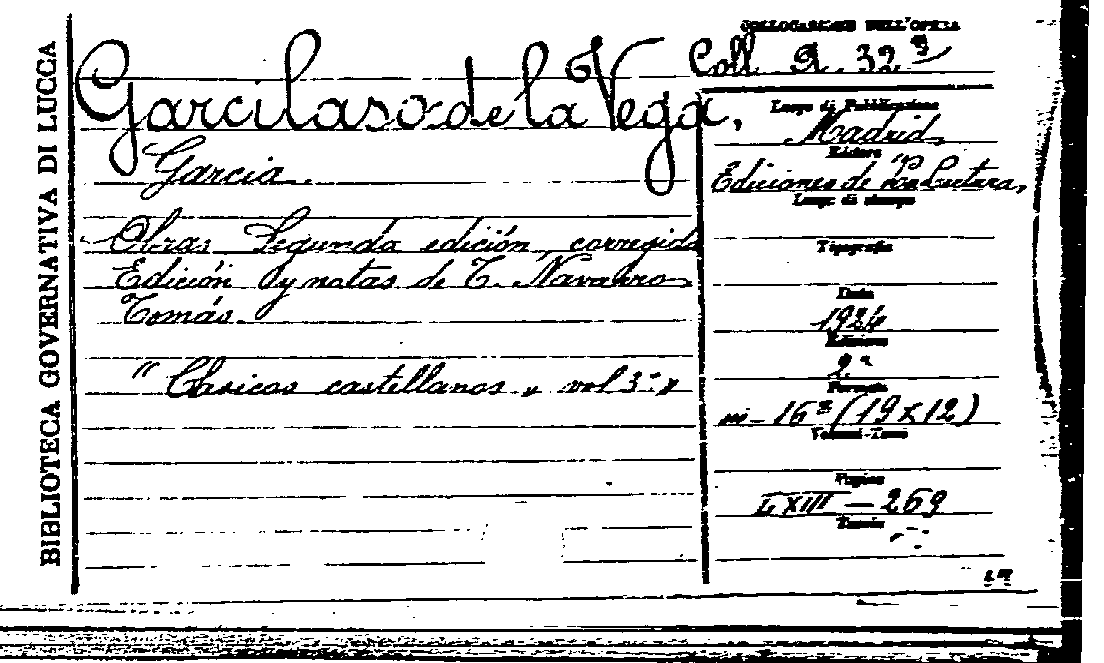 BIBLIOTECA GOVERNATIVA DI LUCCA
Garcilaso de la Vega,
Garcia.
Obras Segunda edición, corregida
Edición y notas de T. Navarro
Tomás.
"Clasicos castellanos" vol 3.°
COLLOCAZIONE DELL'OPERA
Coll. 2. 32
Luogo di Pubblicazione
Madrid,
Editore
Ediciones de "La Lectura,
Luogo di stampa
Tipografia
Data
1924
Edizione
2.ª
Formato
in-16° (19x12)
Volumi-Tomo
Pagine
LXIII — 269
Tavole